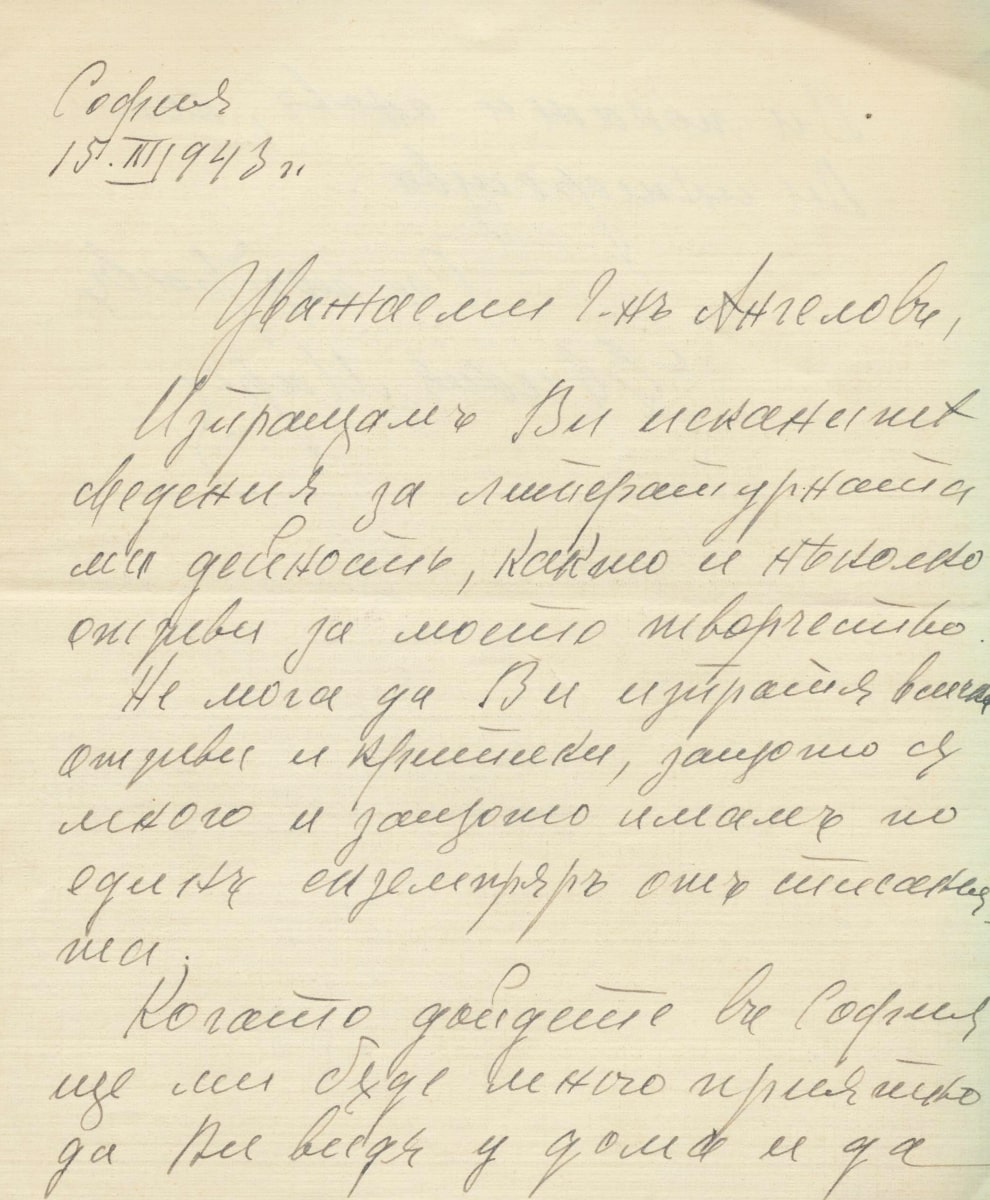 София
15.III.1943 г.
Уважаеми г-нъ Ангеловъ,
Изпращамъ Ви исканитѣ
сведения за литературната
ми дейность, както и нѣколко
отзиви за моето творчество.
Не мога да Ви изпратя всички
отзиви и критики, защото сѫ
много и защото имамъ по
единъ екземпляръ отъ писания-
та.
Когато дойдете въ София
ще ми бѫде много приятно
да Ви видя у дома и да